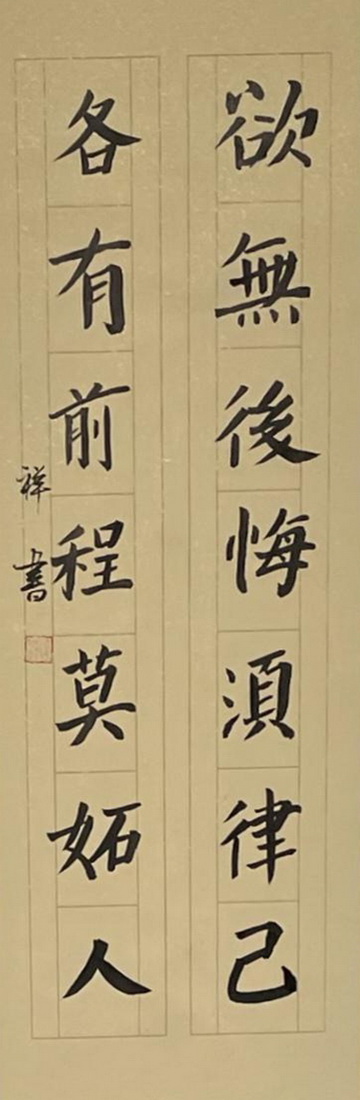 欲無後悔須律己
各有前程莫妬人
祥書